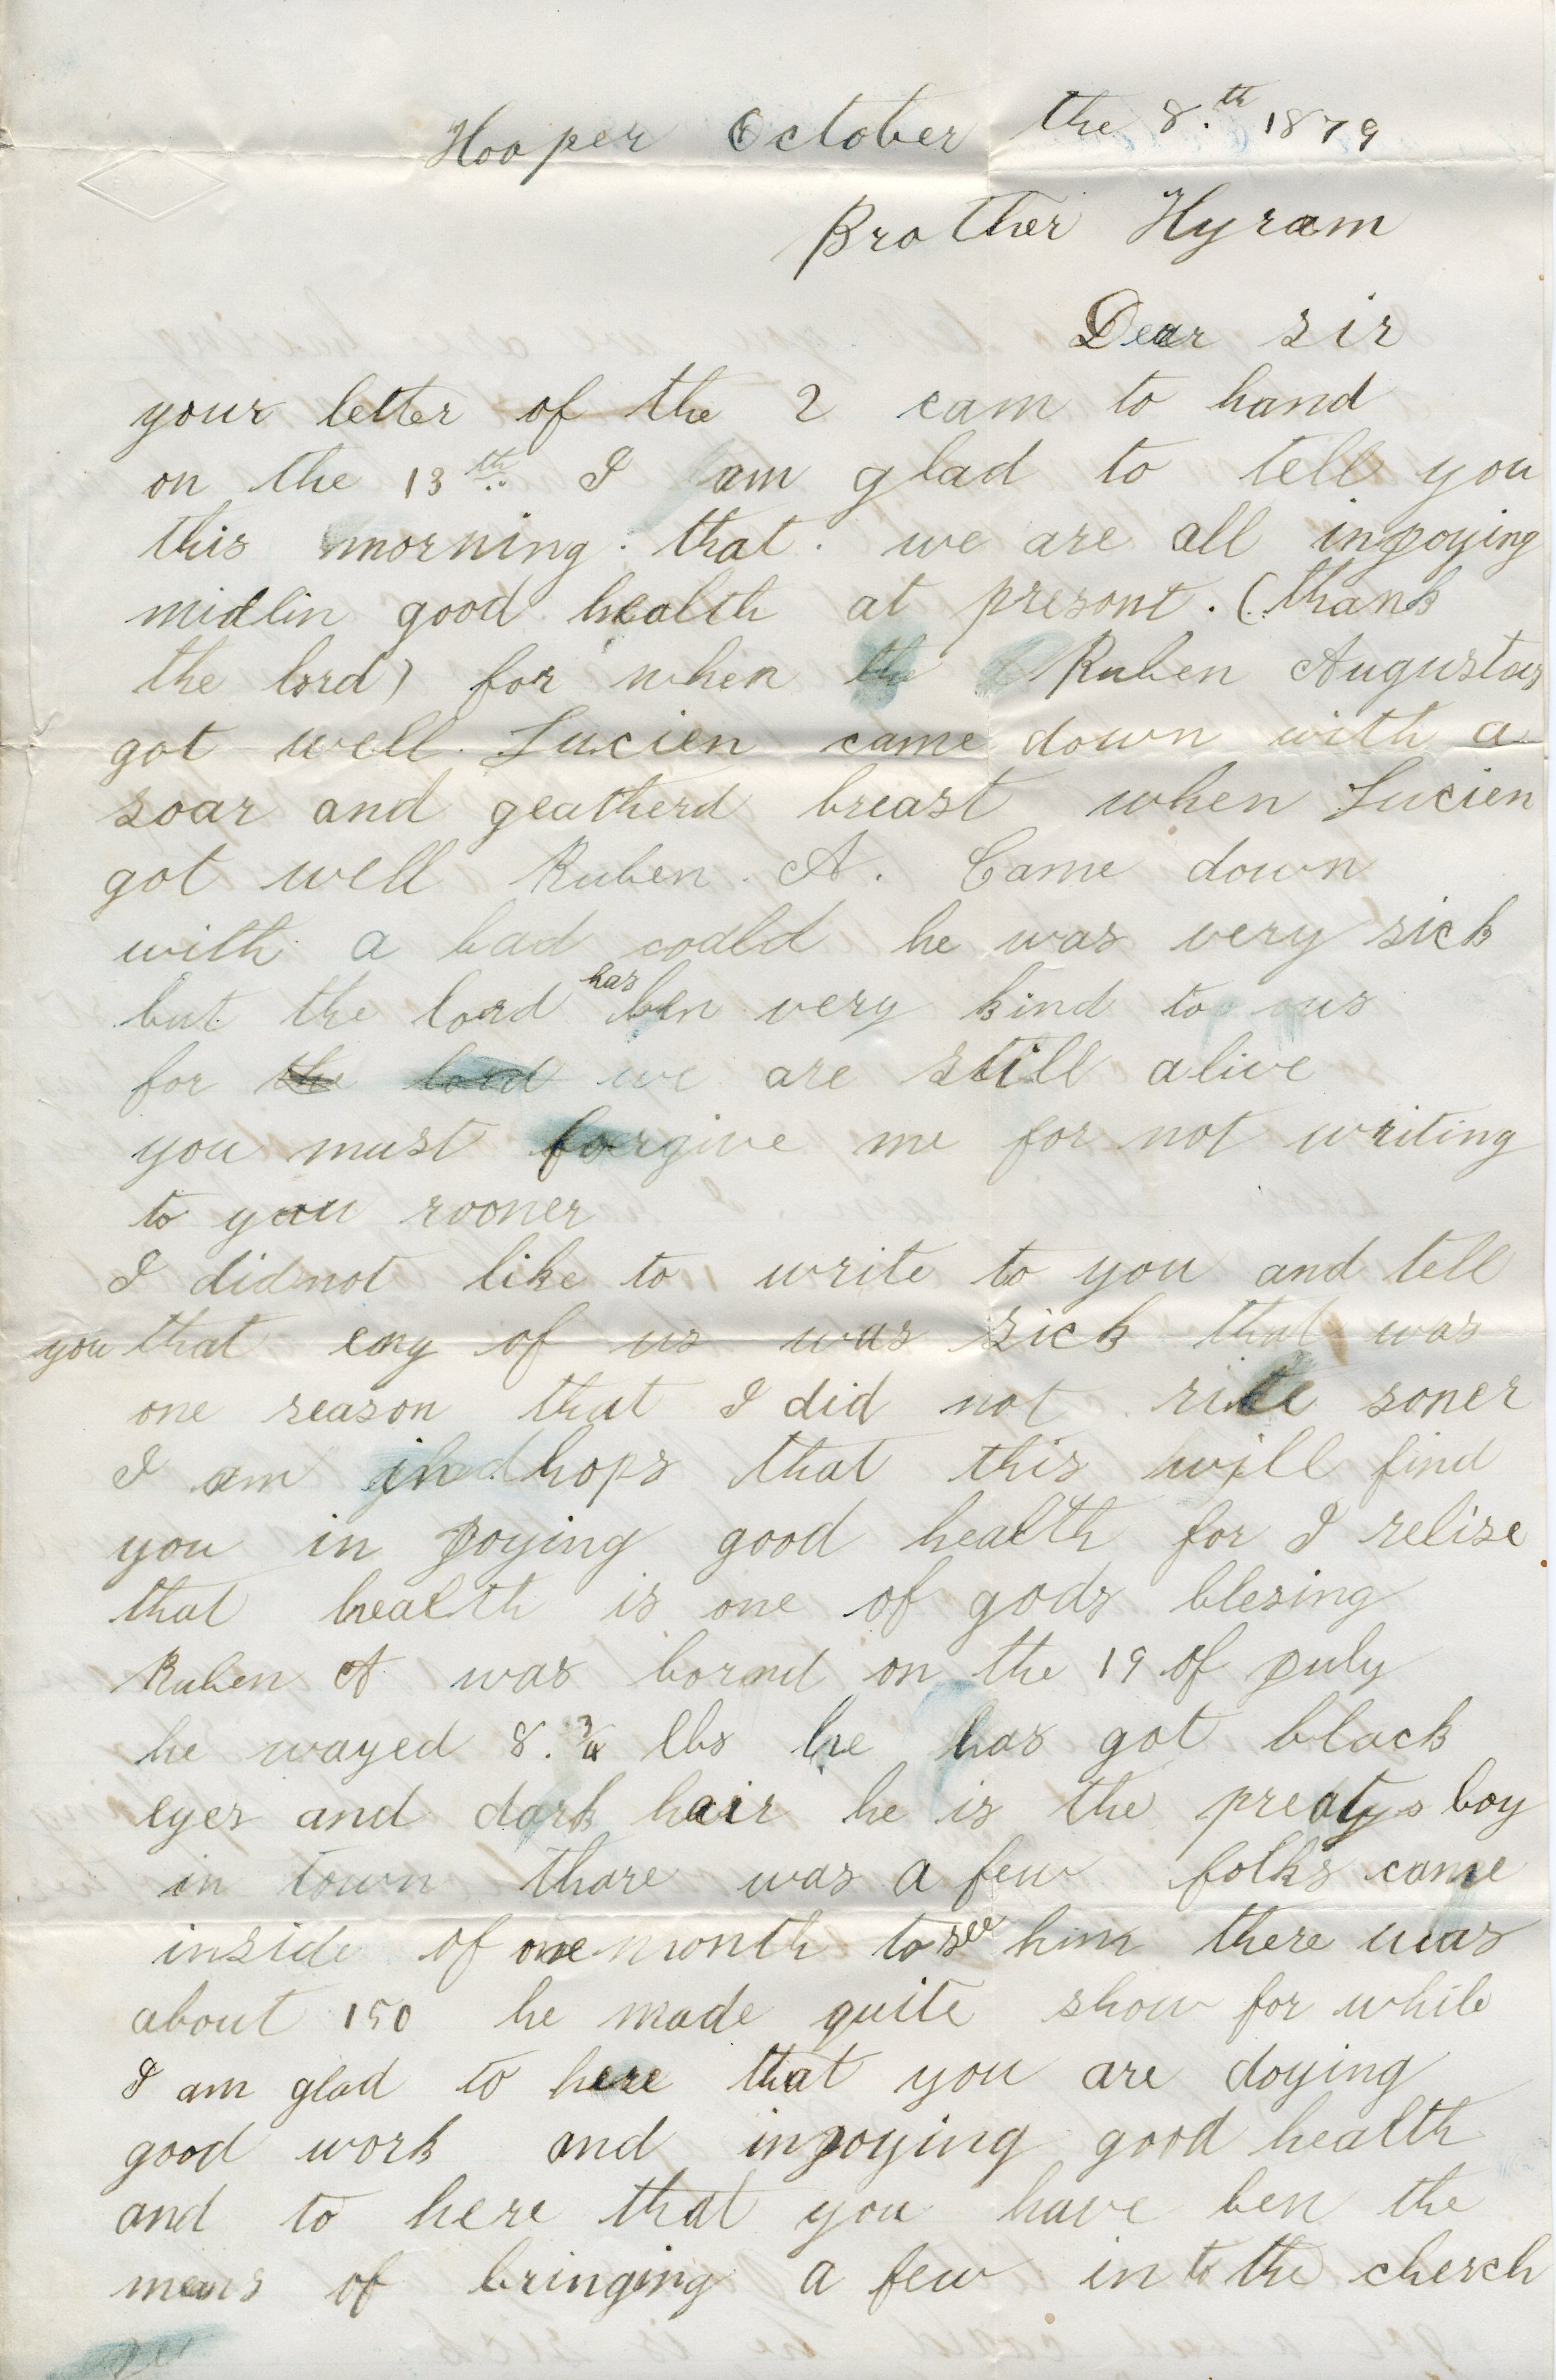 Hooper October the 8.th 1879
Brother Hyram
Dear sir
your letter of the 2 cam to hand
on the 13th. I am glad to tell you
this morning. that. we are all injoying
midlin good health at presont. (thank
the lord) for when the Ruben Augustas
got well. Lucien came down with a
soar and geatherd breast when Lucien
got well Ruben. A. Came down
with a bad coald he was very sick
but the lord has ben very kind to us
for the lord we are still alive
you must forgive me for not writing
to you sooner
I didnot like to write to you and tell
you that eny of us was sick that was
one reason that I did not rite soner
I am in hops that this will find
you in joying good health for I relise
that health is one of gods blesing
Ruben A was bornd on the 19 of july
he wayed 8. 3/4 lbs he has got black
eyes and dark hair he is the preatys boy
in town thare was a few folks came
inside of one month to see him there was
about 150 he made quite show for while
I am glad to here that you are doying
good work and injoying good health
and to here that you have ben the
means of bringing a few in to the cherch